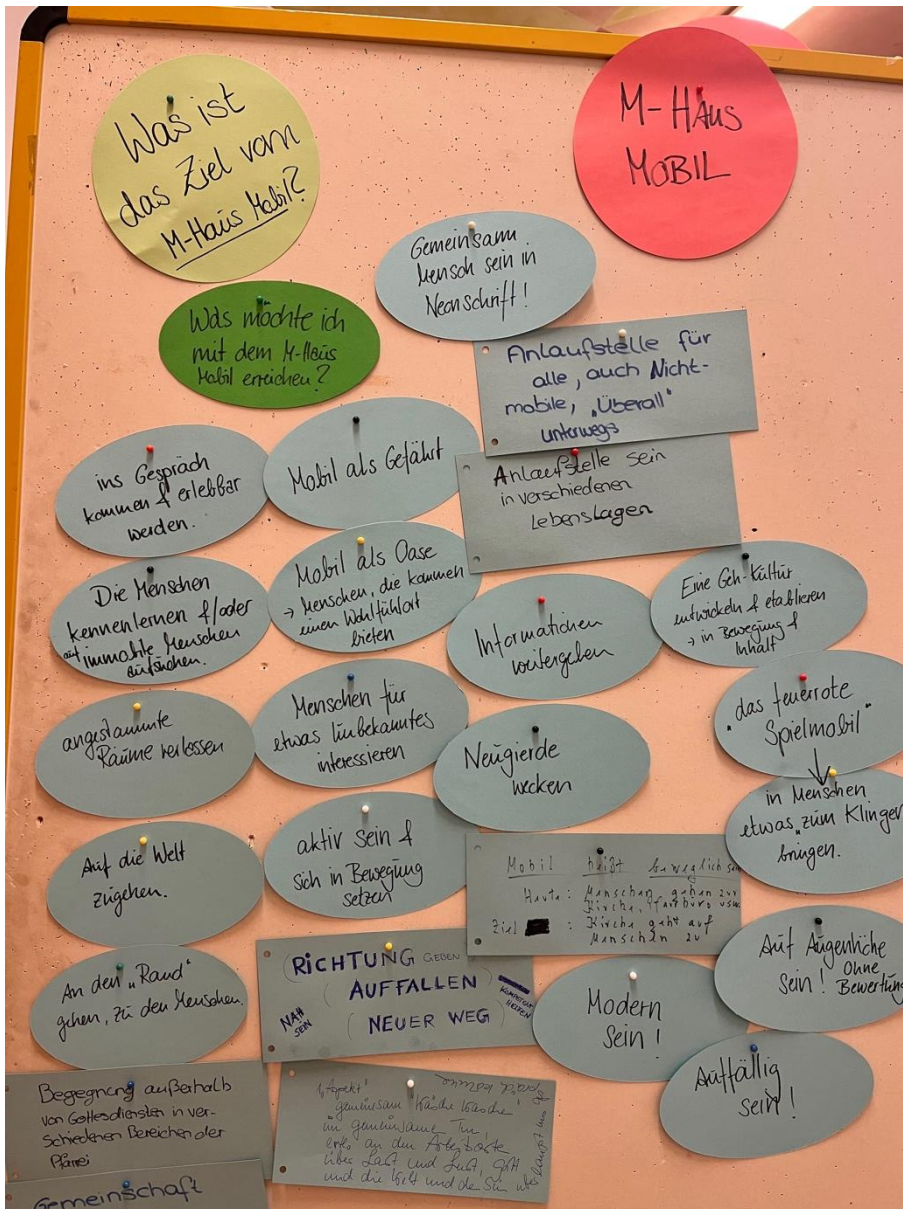 Was ist
das Ziel vom
M-Haus Mobil?
M-HAUS
MOBIL
Gemeinsam
Mensch sein in
Neonschrift!
Was möchte ich
mit dem M-Haus
Mobil erreichen?
Anlaufstelle für
alle, auch Nicht-
mobile, „Überall"
unterwegs
ins Gespräch
kommen & erlebbar
werden.
Mobil als Gefährt
Anlaufstelle sein
in verschiedenen
Lebenslagen
Die Menschen
kennenlernen &/oder
auf immobile Menschen
aufsuchen.
Mobil als Oase
→ Menschen, die kommen
einen Wohlfühlort
bieten
Informationen
weitergeben
Eine Geh-Kultur
entwickeln & etablieren
→ in Bewegung &
Inhalt
angestammte
Räume verlassen
Menschen für
etwas Unbekanntes
interessieren
Neugierde
wecken
"das feuerrote
Spielmobil"
in Menschen
etwas „zum Klingen
bringen.
Auf die Welt
zugehen.
aktiv sein &
sich in Bewegung
setzen
Mobil heißt beweglich sein
Heute: Menschen gehen zur
Kirche, Pfarrbüro usw.
Ziel : Kirche geht auf
Menschen zu
An den „Rand"
gehen, zu den Menschen.
(RICHTUNG GEBEN
(AUFFALLEN)
(NEUER WEG)
NAH
SEIN
KOMPETENT
HELFEN
Modern
sein!
Auf Augenhöhe
sein! ohne
Bewertung
Auffällig
sein!
Begegnung außerhalb
von Gottesdiensten in ver-
schiedenen Bereichen der
Pfarrei
"Aspekt"
gemeinsam Wäsche wasche
im gemeinsame Tun,
an den Arbeitsorte
über Last und Lust, Gott
und die Welt und den Sinn überhaupt ins Gespräch kommen
Gemeinschaft